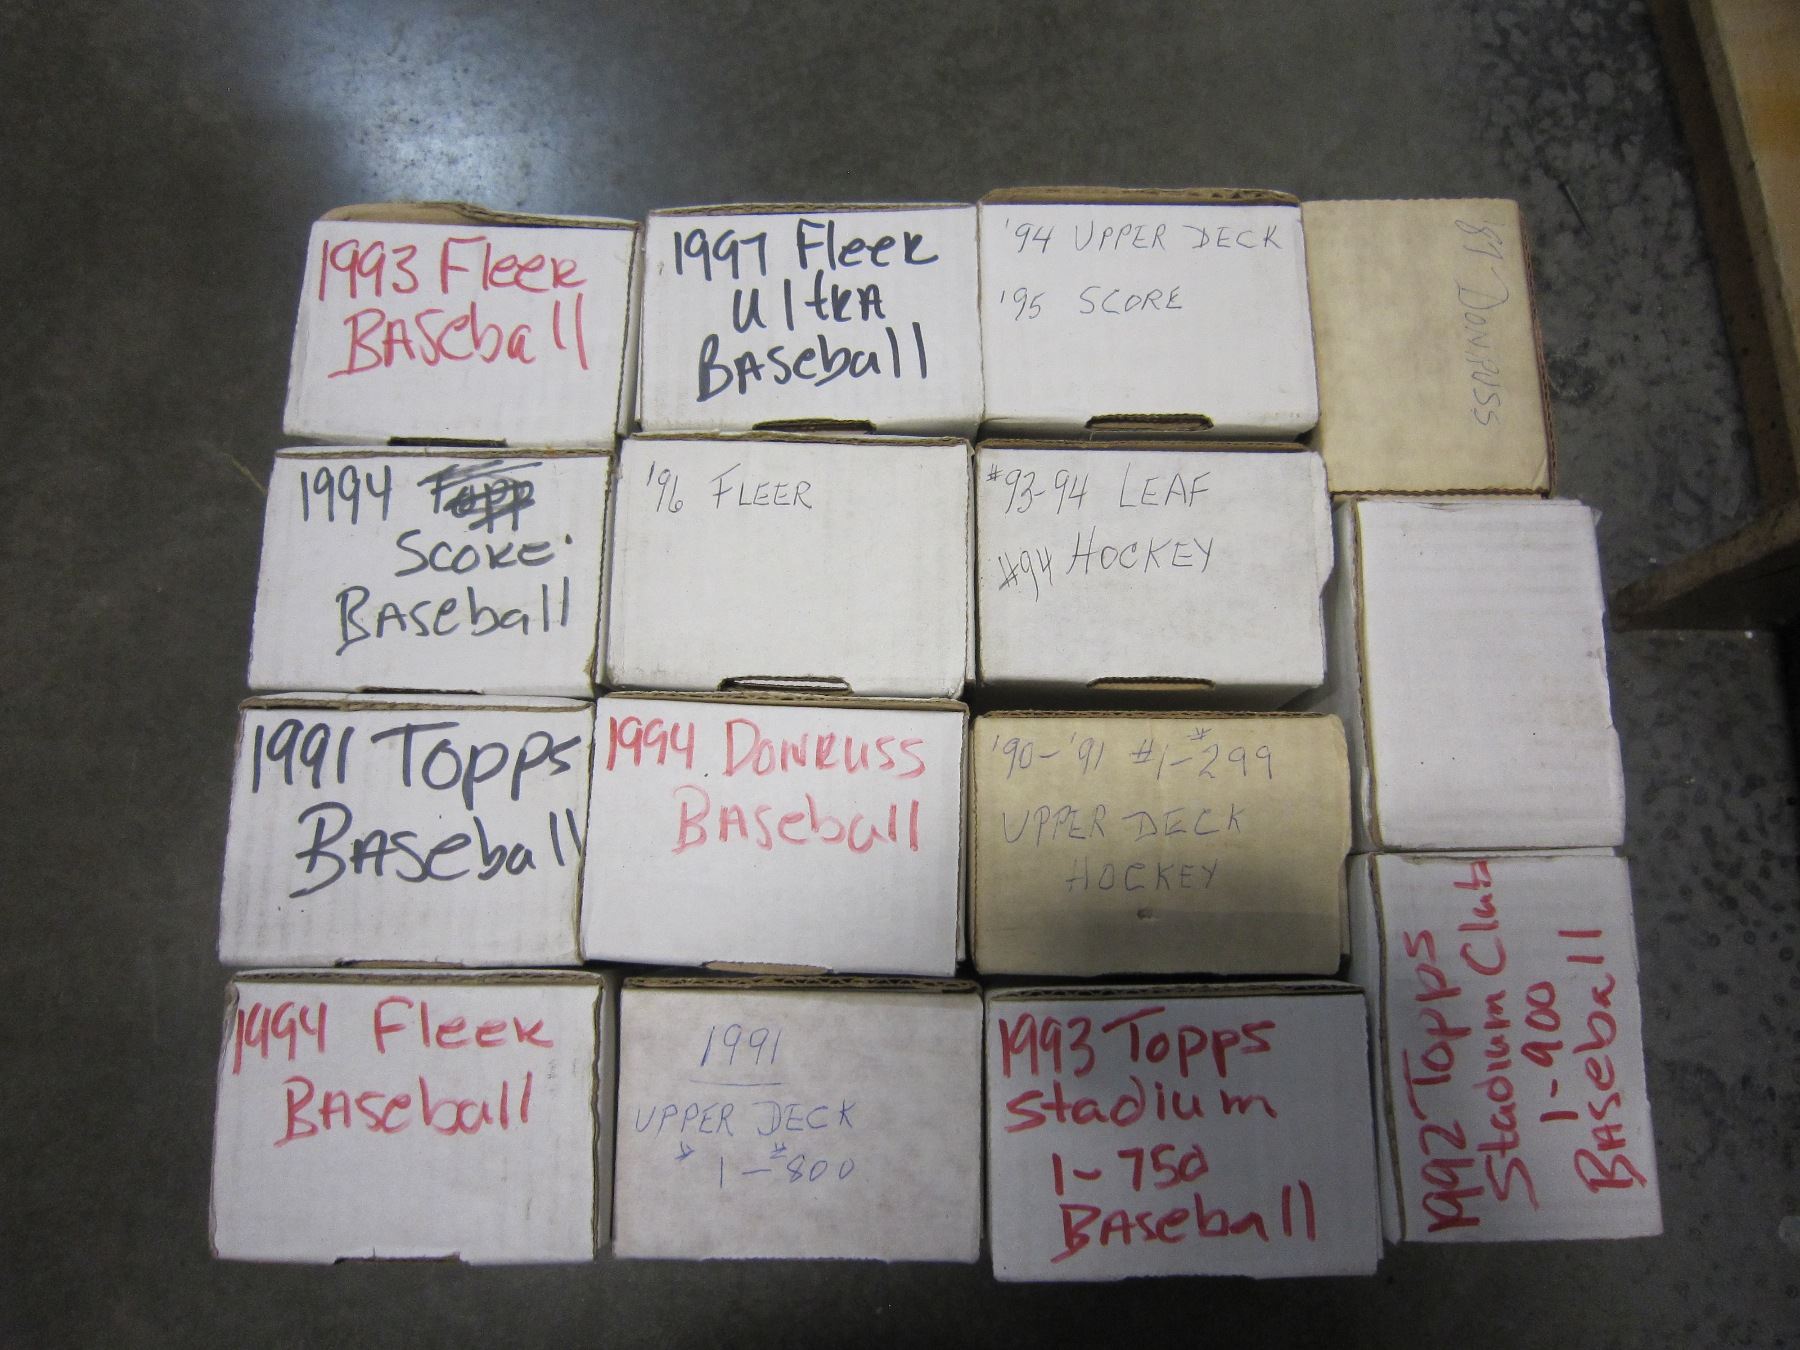 1993 Fleer
Baseball
1997 Fleer
Ultra
Baseball
'94 UPPER DECK
'95 SCORE
DONRUSS
1994
Score
Baseball
'96 FLEER
#93-94 LEAF
#94 HOCKEY
1991 Topps
Baseball
1994 Donruss
Baseball
'90-'91 #1-#299
UPPER DECK
HOCKEY
1994 Fleer
Baseball
1991
UPPER DECK
#1-#800
1993 Topps
Stadium
1-750
Baseball
1992 Topps
Stadium Club
1-900
Baseball